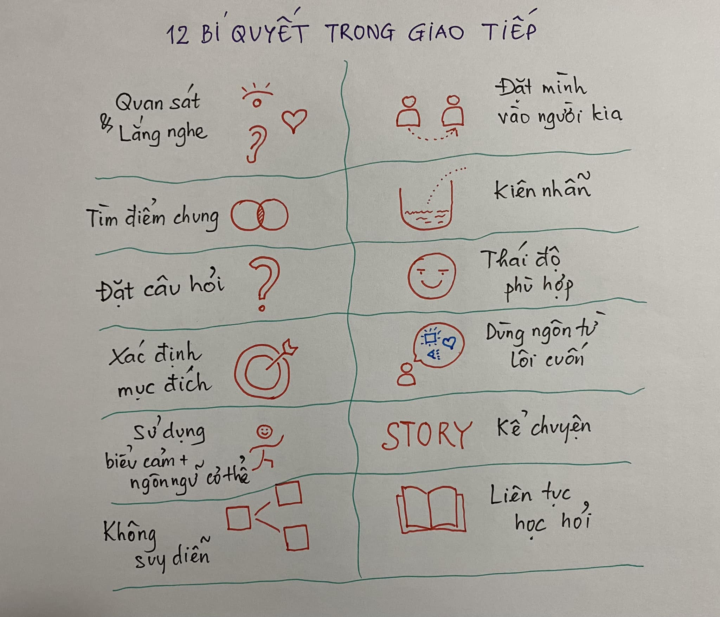 12 BÍ QUYẾT TRONG GIAO TIẾP
Quan sát
& Lắng nghe
Đặt mình
vào người kia
Tìm điểm chung
Kiên nhẫn
Đặt câu hỏi
Thái độ
phù hợp
Xác định
mục đích
Dùng ngôn từ
lôi cuốn
Sử dụng
biểu cảm +
ngôn ngữ cơ thể
STORY
Kể chuyện
Không
suy diễn
Liên tục
học hỏi